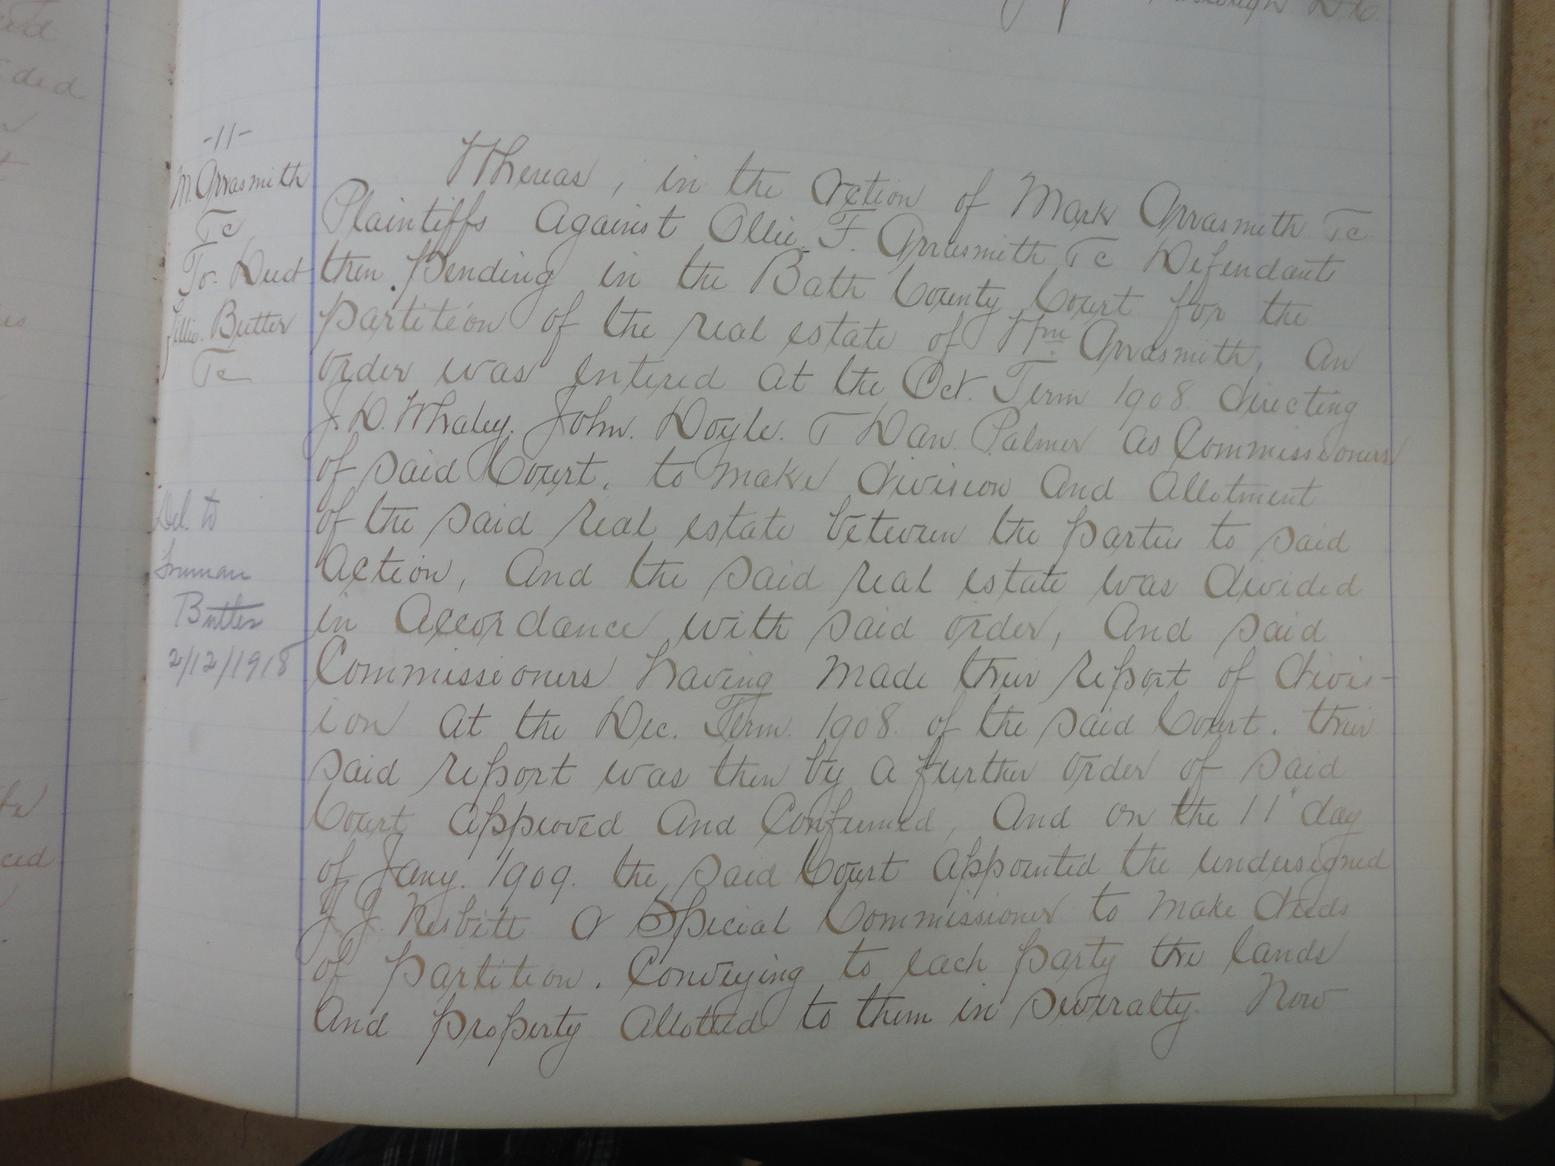 D.C.
-11-
M. Arrasmith
&c
To. Deed
Butler
&c
Del. to
Truman
Butler
2/12/1918
Whereas, in the Action of Mark Arrasmith &c
Plaintiffs Against Ollie. F. Arrasmith &c Defendants
then pending in the Bath County Court for the
partition of the real estate of Wm Arrasmith, An
order was entered at the Oct. Term 1908 directing
J. D. Whaley. John. Doyle. & Dan. Palmer as Commissioners
of said Court. to make division And Allotment
of the said real estate between the parties to said
Action, And the said real estate was divided
in Accordance with said order, And said
Commissioners having made their report of divis-
ion at the Dec. Term. 1908. of the said Court. their
said report was then by a further order of said
Court approved And Confirmed, And on the 11" day
of Jany. 1909. the said Court appointed the undersigned
J. J. Nesbitt a Special Commissioner to make deeds
of partition. Conveying to each party the lands
And property Allotted to them in severalty. Now
ded
ced